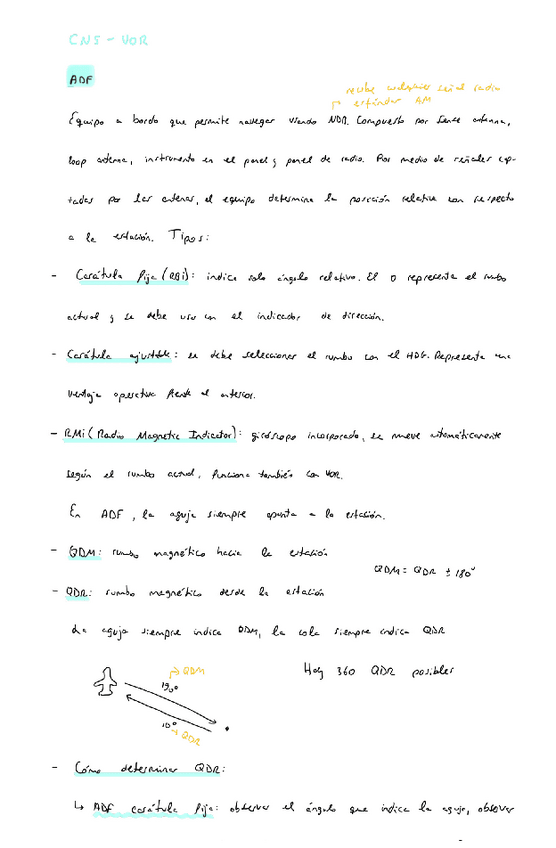 CNS - VOR
ADF
recibe cualquier señal radio
↱ estándar AM
Equipo a bordo que permite navegar usando NDB. Compuesto por sense antenna,
loop antenna, instrumento en el panel y panel de radio. Por medio de señales cap-
tadas por las antenas, el equipo determina la posición relativa con respecto
a la estación. Tipos:
- Carátula fija (RBI): indica solo ángulo relativo. El 0 representa el rumbo
actual y se debe usar con el indicador de dirección.
- Carátula ajustable: se debe seleccionar el rumbo con el HDG. Representa una
ventaja operativa frente al anterior.
- RMI (Radio Magnetic Indicator): giróscopo incorporado, se mueve automáticamente
según el rumbo actual, funciona también con VOR.
En ADF, la aguja siempre apunta a la estación.
- QDM: rumbo magnético hacia la estación
QDM = QDR ± 180°
- QDR: rumbo magnético desde la estación
La aguja siempre indica QDM, la cola siempre indica QDR
Hay 360 QDR posibles
↱ QDM
190°
10°
→ QDR
- Cómo determinar QDR:
↳ ADF carátula fija: observar el ángulo que indica la aguja, observar